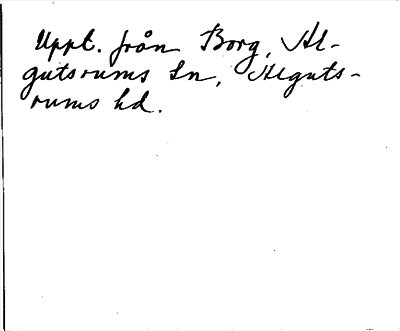 Uppt. från Borg, Al-
gutsrums sn, Alguts-
rums hd.